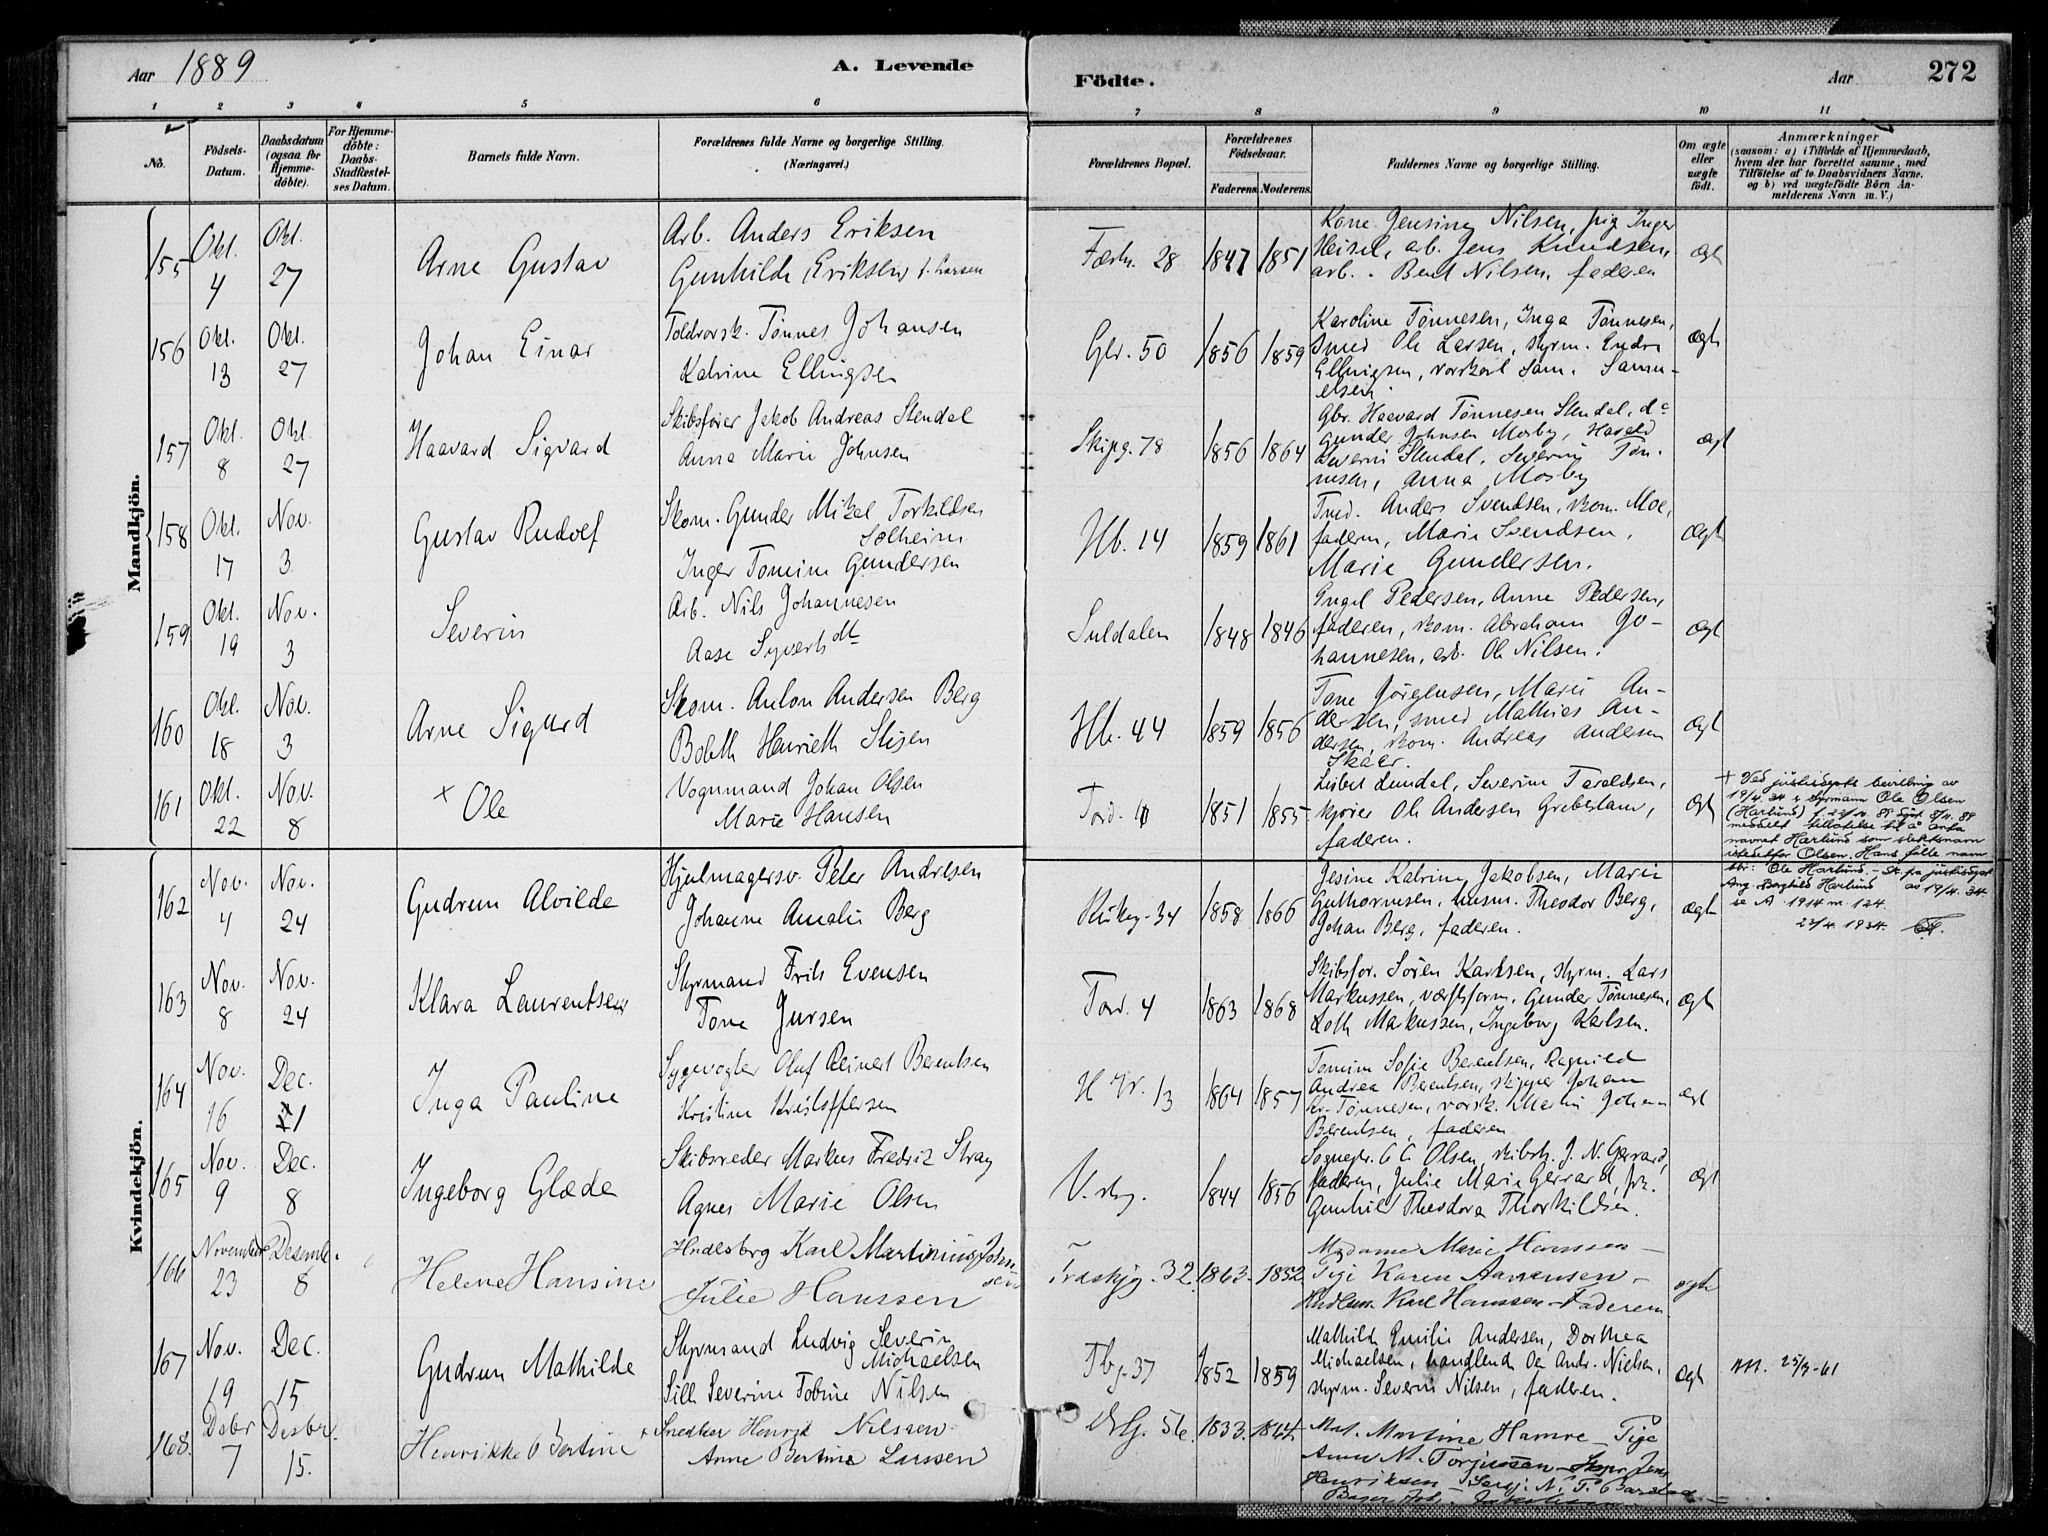 Aar 1889
A. Levende
Födte.
Aar
272
1 2 3 4 5 6 7 8 9 10 11
No.
Födsels-Datum.
Daabsdatum (ogsaa for Hjemme-döbte).
For Hjemme-döbte: Daabs-Stadfæstel-ses Datum.
Barnets fulde Navn.
Forældrenes fulde Navne og borgerlige Stilling. (Næringsvei.)
Forældrenes Bopæl.
Forældrenes Födselsaar.
Faderens. Moderens.
Faddernes Navne og borgerlige Stilling.
Om ægte eller uægte födt.
Anmærkninger
(saasom: a) i Tilfælde af Hjemmedaab,
hvem der har forrettet samme, med
Tilföielse af to Daabsvidners Navne.
og b) ved uægtefödte Börn An-
melderens Navn m. V.)
Mandkjön.
155 Okt. 4 Okt. 27 Arne Gustav
Arb. Anders Eriksen
Gunhilde Eriksen f. Larsen
Fæstn. 28 1847 1851
Kone Jensine Nilsen, pig. Inger
Heisel, arb. Jens Knudsen,
arb. Bent Nilsen, faderen
ægt
156 Okt. 13 Okt. 27 Johan Einar
Toldrorsk. Tönnes Johansen
Katrine Ellingsen
Glv. 50 1856 1859
Karoline Tönnesen, Inga Tönnesen,
smed Ole Larsen, styrm. Endre
Ellingsen, Sam. Samu-
elsen.
ægt
157 Okt. 8 Okt. 27 Haavard Sigvard
Skibsförer Jakob Andreas Stendal
Anna Marie Johnsen
Skipg. 78 1856 1864
Gbr. Haavard Tönnesen Stendal, do
Gunder Johnsen Mosby, Harald
Severin Stendal, Severine Tön-
nesen, Anna Mosby
ægt
158 Okt. 17 Nov. 3 Gustav Rudolf
Skom. Gunder Mikal Torkildsen
Solheim
Inger Tomine Gundersen
Hb. 14 1859 1861
Anders Svendsen, skom. Moe,
faderen, Marie Svendsen,
Marie Gundersen.
ægt
159 Okt. 19 Nov. 3 Severin
Arb. Nils Johannesen
Aase Syverts dtr
Suldalen 1848 1846
Engel Pedersen, Anne Pedersen,
faderen, skom. Abraham Jo-
hannesen, arb. Ole Nilsen.
ægt
160 Okt. 18 Nov. 3 Arne Sigurd
Skom. Anton Andersen Berg
Bolette Henriette Stisen
Hb. 44 1859 1856
Tone Jörgensen, Marie An-
dersen, smed Mathias An-
dersen, skom. Andreas Andersen
Skaar.
ægt
161 Okt. 22 Nov. 8 + Ole
Vognmand Johan Olsen
Marie Hansen
Tord. 1851 1855
Lisbet Lundal, Severine Taraldsen,
kjörer Ole Andersen Grebestam,
faderen.
ægt
+ Ved justisdepts bevilling av
19/4 34 er styrmann Ole Olsen
(Harlund) f. 22/10 89 döpt 8/11 89
meddelt tillatelse til å anta
navnet Harlund som slektsnavn
istedetfor Olsen. Hans fulle navn
blir: Ole Harlund. – Skr fra justisdept
av 19/4. 34.
Ang. Borghild Harlund
se A 1914 nr. 124.
23/4. 1934.
Kvindekjön.
162 Nov. 4 Nov. 24 Gudrun Alvilde
Hjulmagersv. Peter Andresen
Johanne Amalie Berg
34 1858 1866
Jesine Katrine Jakobsen, Marie
Guthormsen, husm. Theodor Berg,
Johan Berg, faderen.
ægt
163 Nov. 8 Nov. 24 Klara Laurentsen
Styrmand Frits Evensen
Tone Jursen
Tord. 4 1863 1868
Skibsför. Sören Karlsen, styrm. Lars
Markussen, værftsform. Gunder Tönnesen,
Lotte Markussen, Ingeborg Karlsen.
ægt
164 Nov. 16 Dec. 1 Inga Pauline
Sygevogter Oluf Reinert Berentsen
Kristine Kristoffersen
13 1864 1857
Tomine Sofie Berentsen, Ragnild
Andrea Berentsen, skipper Johan
Kr. Tönnesen, Martin Johan
Berentsen, faderen
ægt
165 Nov. 9 Dec. 8 Ingeborg Glæde
Skibsreder Markus Fredrik Stray
Agnes Marie Olsen
V. stg. 1844 1856
Sognepr. C C. Olsen, skibsk. J. N. Gerrard,
faderen, Julie Marie Gerrard, frk.
Gunhild Theodora Thorkildsen.
ægt
166 November 23 Desemb. 8 Helene Hansine
Karl Martinius John-
sen
Julie Hanssen
32 1863 1852
Madame Marie Hanssen –
Pige Karen Aanensen –
Karl Hanssen – Faderen
ægte
167 Nov. 19 Dec. 15 Gudrun Mathilde
Styrmand Ludvig Severin
Michaelsen
Sille Severine Tobine Nilsen
Tbg. 37 1852 1859
Mathilde Emilie Andersen, Dorthea
Michaelsen, handlende Ole Andr. Nielsen,
styrm. Severin Nilsen, faderen.
ægt
att. 25/9-61
168. Desbr 7 Desbr. 15. Henrikke Bertine
Snedker Henrik Nilssen
Anne Bertine Larssen
56 1833. 1844.
Mad. Martine Hamre – Pige
Anne M. Torjussen – Jens
Henriksen